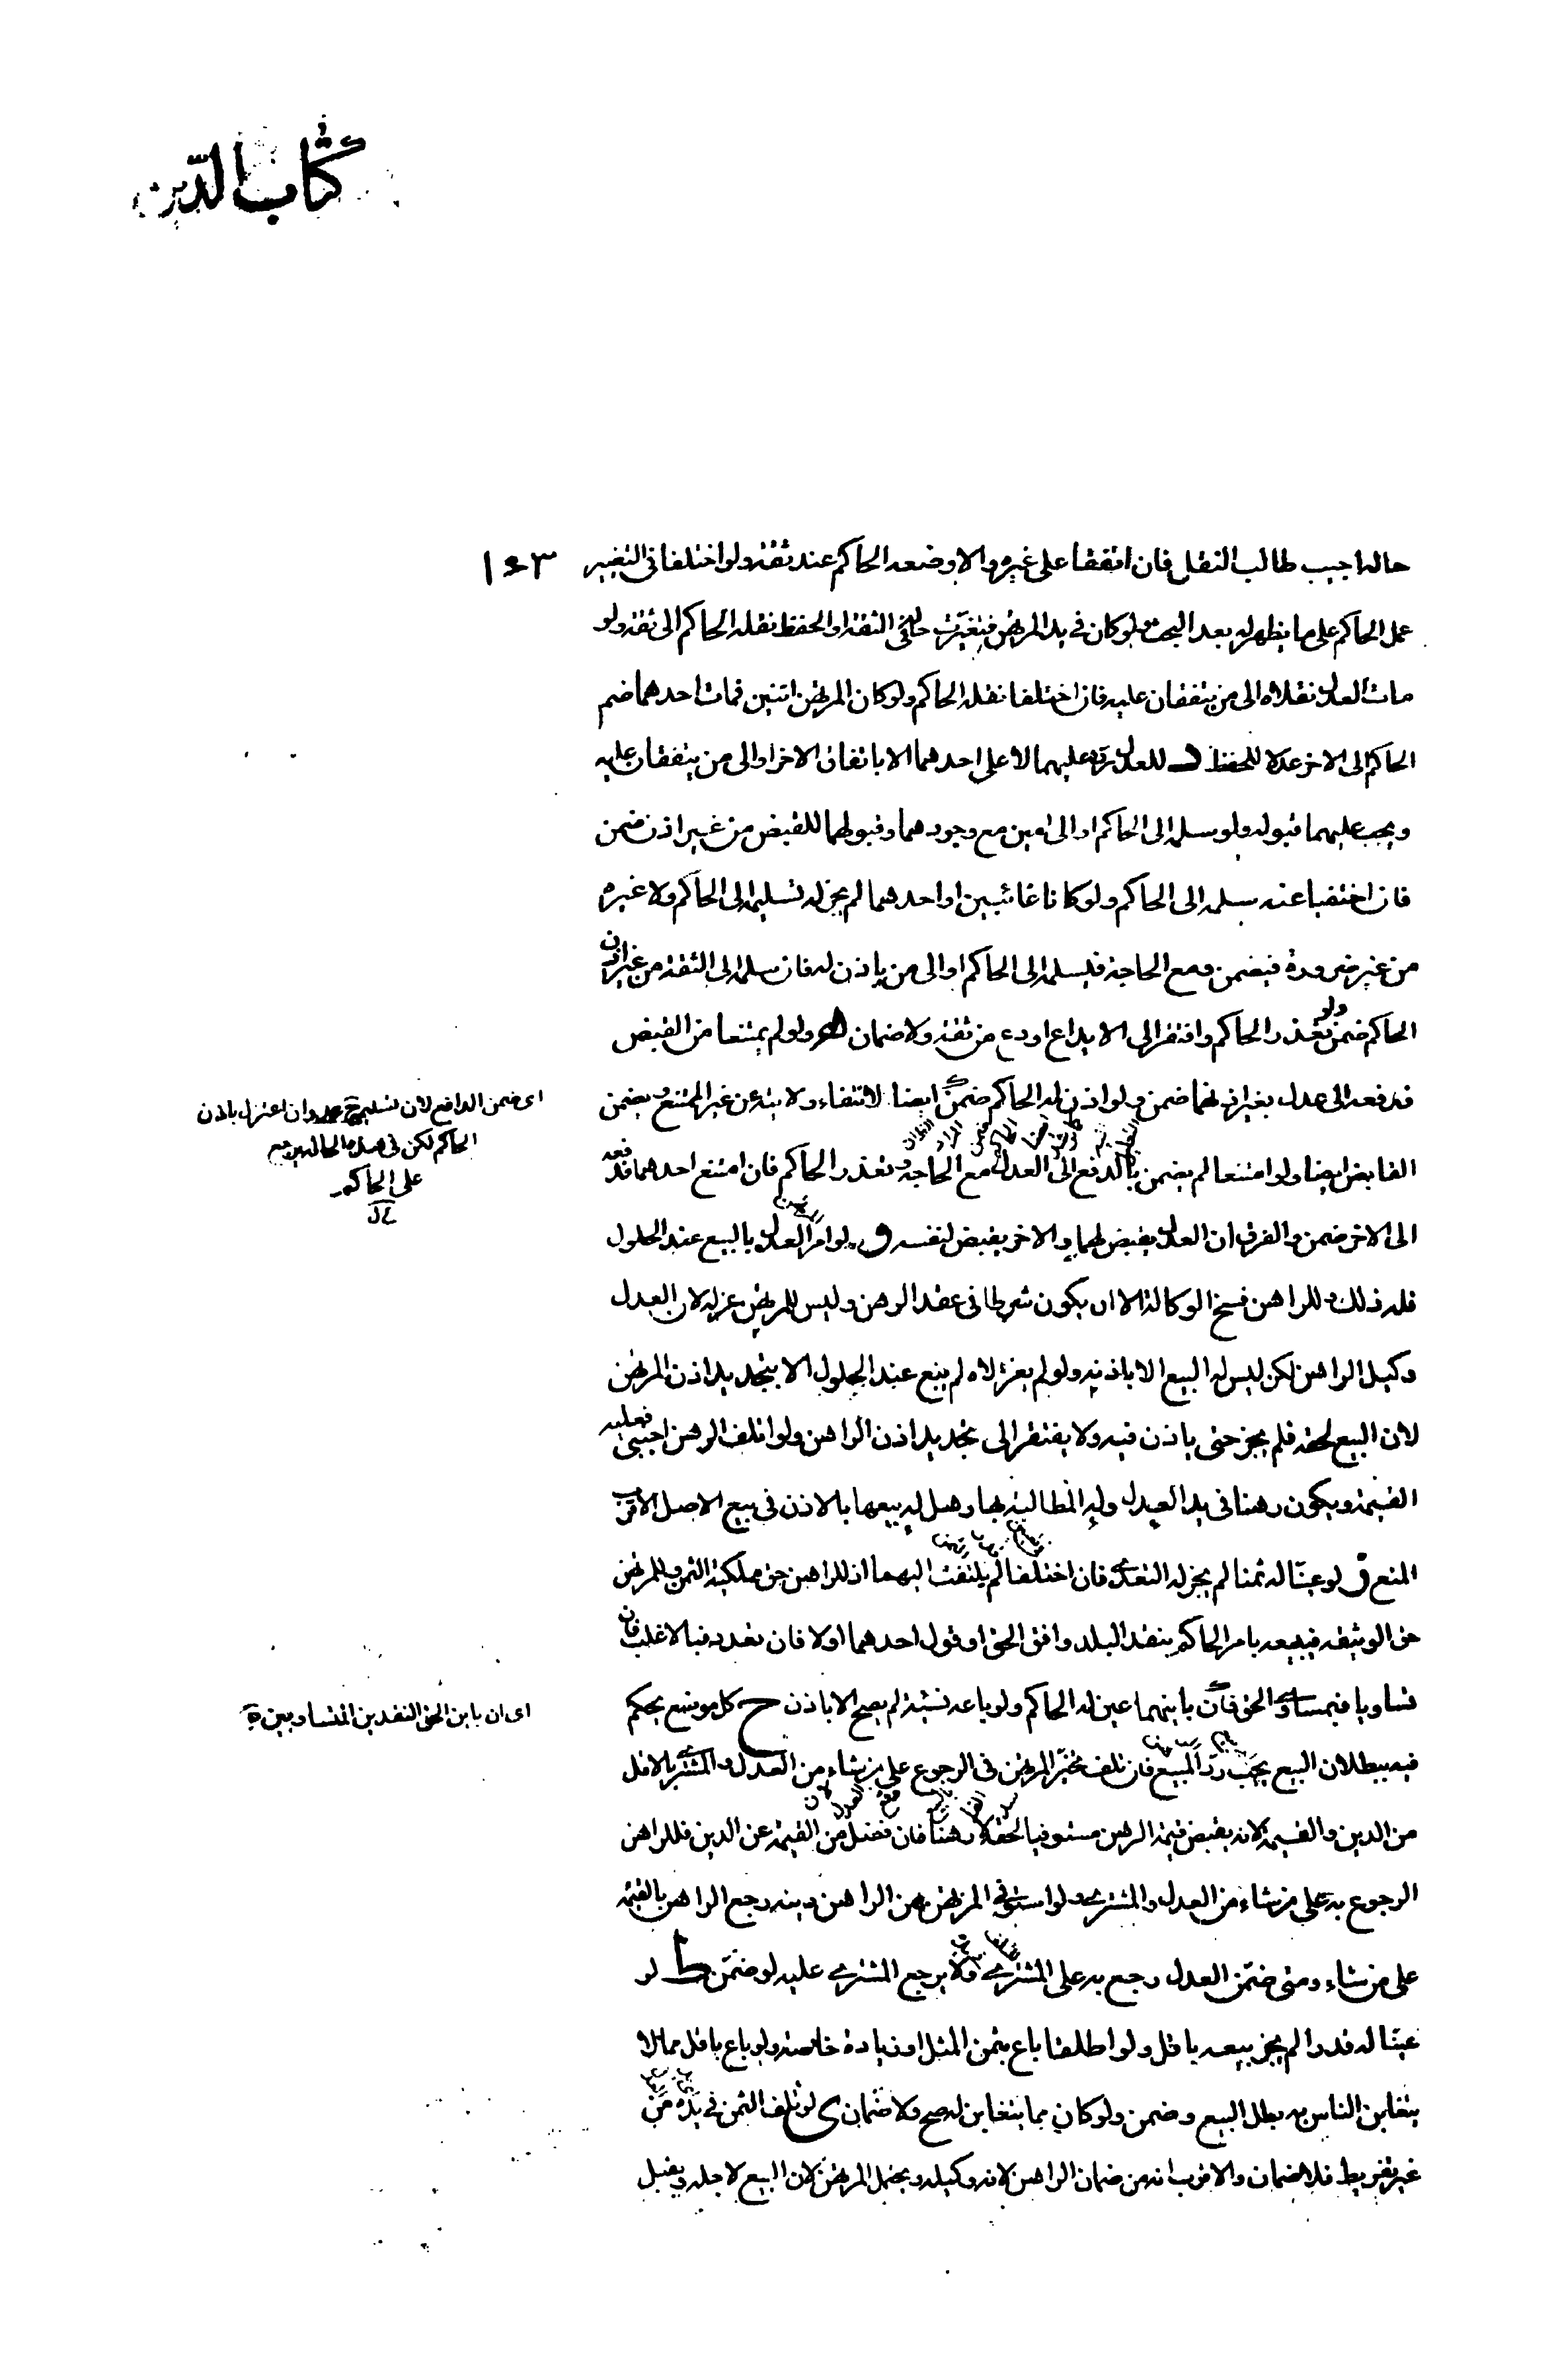 كتاب الدين
١٤٣
حاله اجيب طالب النقل فان اتفقا على غيره والا وضعه الحاكم عند ثقة ولو اختلفا فى التغير
عمل الحاكم على ما يظهر له بعد البحث ولو كان فى يد المرتهن فتغيّرت حاله فى الثقة او الحفظ نقله الحاكم الى ثقة ولو
مات العدل نقلاه الى من يتفقان عليه فان اختلفا نقله الحاكم ولو كان المرتهن اثنين فمات احدهما ضم
الحاكم الى الاخر عدلا للحفظ د للعدل ردّه عليهما لا على احدهما الا باتفاق الاخر او الى من يتفقان عليه
ويجب عليهما قبوله ولو سلمه الى الحاكم او الى امين مع وجودهما وقبولهما للقبض من غير اذن ضمن
فان اختفيا عنه سلمه الى الحاكم ولو كانا غائبين او احدهما لم يجز له تسليمه الى الحاكم ولا غيره
من غير ضرورة فيضمن ومع الحاجة فليسلمه الى الحاكم او الى من ياذن له فان سلمه الى الثقة من غير اذن
الحاكم ضمن ولو تعذر الحاكم وافتقر الى الايداع اودع من ثقة ولا ضمان ه ولو لم يمتنعا من القبض
فدفعه الى عدل بغير اذنهما ضمن ولو اذن له الحاكم ضمن ايضا لانتفاء ولايته عن غير الممتنع ويضمن
القابض ايضا ولو امتنعا لم يضمن بالدفع الى العدل مع الحاجة وتعذر الحاكم فان امتنع احدهما فدفعه
الى الاخر ضمن والفرق ان العدل يقبض لهما والاخر يقبض لنفسه و لو امر العدل بالبيع عند الحلول
فله ذلك وللراهن فسخ الوكالة الا ان يكون شرطا فى عقد الرهن وليس للمرتهن عزله لان العدل
وكيل الراهن لكن ليس له البيع الا باذنه ولو لم يعزلاه لم يبع عند الحلول الا بتجديد اذن المرتهن
لان البيع لحقه فلم يجز حتى ياذن فيه ولا يفتقر الى تجديد اذن الراهن ولو اتلف الرهن اجنبى فعليه
القيمة ويكون رهنا فى يد العدل وله المطالبة بها وهل له بيعها بالاذن فى بيع الاصل الاقرب
المنع ز لو عيّنا له ثمنا لم يجز له التعدى فان اختلفا لم يلتفت اليهما اذ للراهن حق ملكية الثمن وللمرتهن
حق الوثيقة فيبيعه بامر الحاكم بنقد البلد وافق الحق او قول احدهما اولا فان تعدد فبالاغلب فان
تساويا فبمساوى الحق فان باينهما عين له الحاكم ولو باعه نسئة لم يصح الا باذن ح كل موضع يحكم
فيه ببطلان البيع يجب ردّ المبيع فان تلف تخيّر المرتهن فى الرجوع على من شاء من العدل والمشترى بالاقل
من الدين والقيمة لانه يقبض قيمة الرهن مستوفيا لحقه لا رهنا فان فضل من القيمة عن الدين فللراهن
الرجوع به على من شاء من العدل والمشترى ولو استوفى المرتهن من الراهن دينه رجع الراهن بالقيمة
على من شاء ومتى ضمّن العدل رجع به على المشترى ولا يرجع المشترى عليه لو ضمّن ط لو
عيّنا له قدرا لم يجز بيعه باقل ولو اطلقا باع بثمن المثل او زيادة خاصة ولو باع باقل مما لا
يتغابن الناس به بطل البيع وضمن ولو كان مما يتغابن له صح ولا ضمان ى لو تلف الثمن فى يده من
غير تفريط فلا ضمان والاقرب انه من ضمان الراهن لانه وكيله ويحتمل المرتهن لان البيع لاجله ويقبل
اى ضمن الدافع لان تسليم وان اعتزل باذن
الحاكم لكن فى هذه الحالة يرجع
على الحاكم
اى ان باين الحق النقدين المتساويين